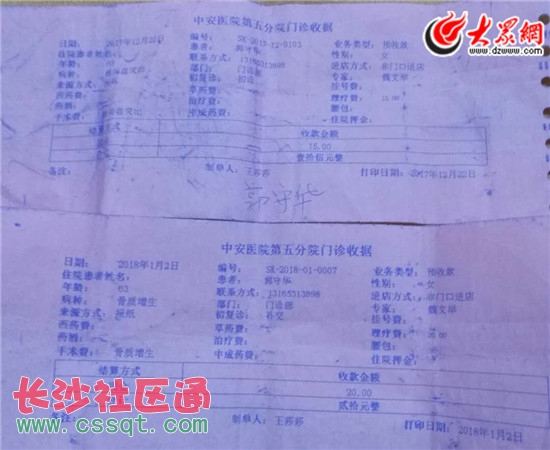 大众网
www.dzwww.com
中安医院第五分院门诊收据
日期: 2017年12月22日 编号: SK-2017-12-0103 业务类型: 预收款
住院患者姓名: 患者: 郭守华 性别: 女
年龄: 63 联系方式: 13165313898 进店方式: 非门口进店
病种: 部门: 门诊部 专家: 魏文举
来源方式: 初复诊: 初诊 挂号费:
西药费: 草药费: 理疗费: 15.00
药酒: 治疗费: 腰包:
手术费: 中成药费: 住院押金:
结算方式 收款金额
15.00
壹拾伍元整
备注: 制单人: 王莎莎 打印日期: 2017年12月22日
郭守华
中安医院第五分院门诊收据
日期: 2018年1月2日 编号: SK-2018-01-0007 业务类型: 预收款
住院患者姓名: 患者: 郭守华 性别: 女
年龄: 63 联系方式: 13165313898 进店方式: 非门口进店
病种: 骨质增生 部门: 门诊部 专家: 魏文举
来源方式: 报纸 初复诊: 补交 挂号费:
西药费: 草药费: 理疗费:
药酒: 治疗费: 腰包:
手术费: 骨质增生 中成药费: 住院押金:
结算方式 收款金额
20.00
贰拾元整
备注: 制单人: 王莎莎 打印日期: 2018年1月2日
长沙社区通
www.cssqt.com